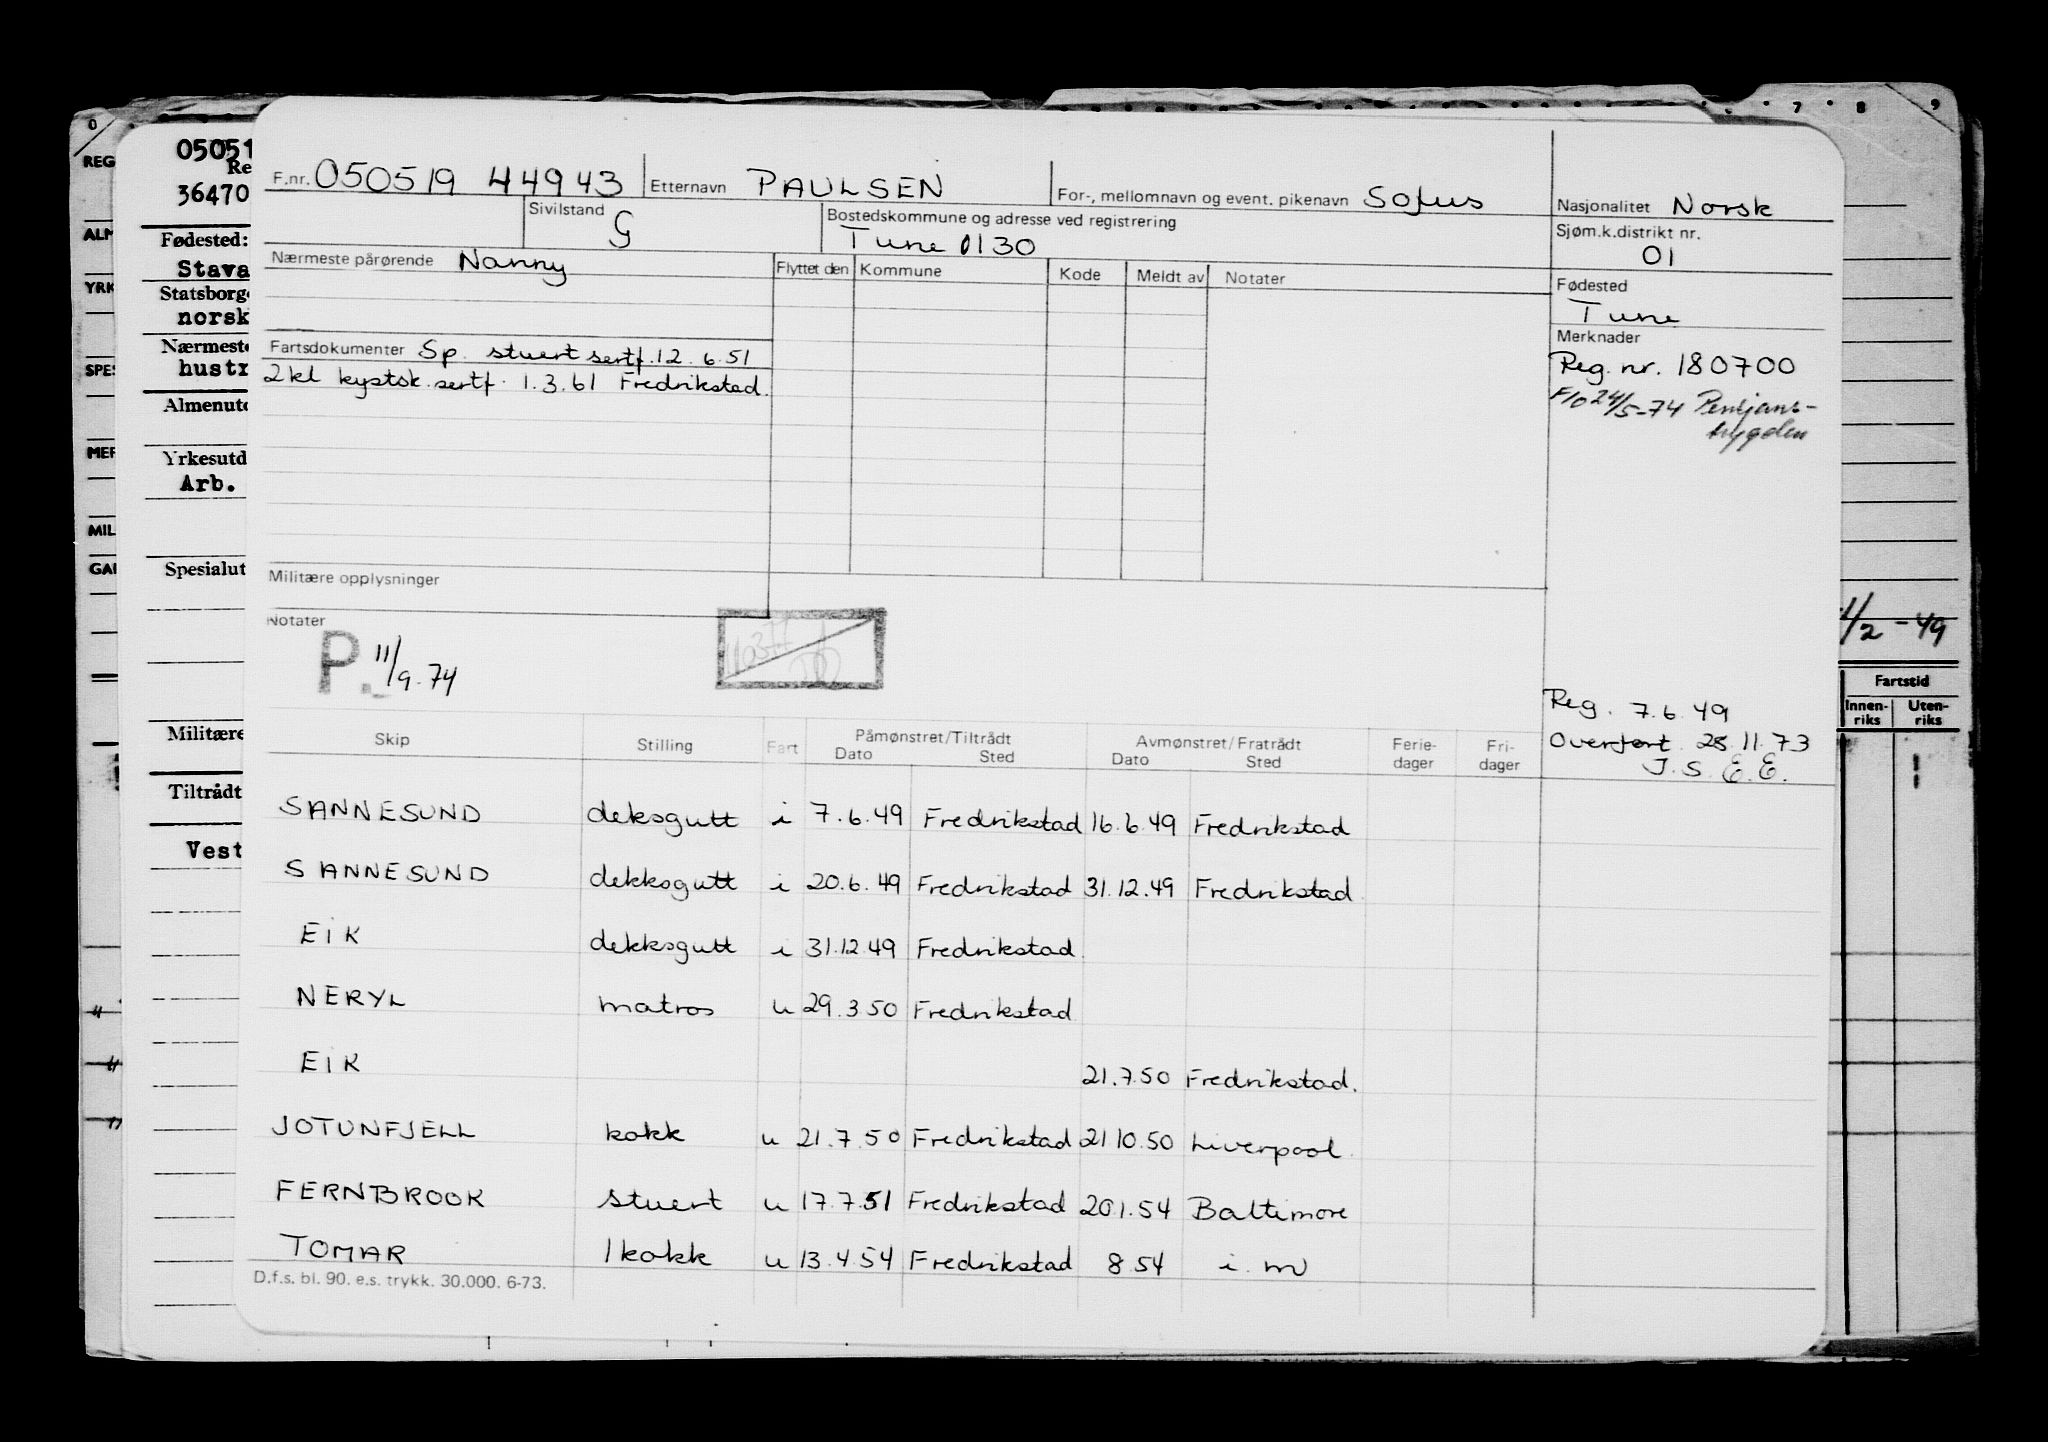 F.nr. 050519 44943 Etternavn PAULSEN For-, mellomnavn og event. pikenavn Sofus Nasjonalitet Norsk
Sivilstand G Bostedskommune og adresse ved registrering Sjøm.k.distrikt nr.
Tune 0130 01
Nærmeste pårørende Nanny Flyttet den Kommune Kode Meldt av Notater Fødested
Tune
Merknader
Fartsdokumenter Sp. stuert sertf. 12.6.51 Reg. nr. 180700
2kl kystsk. sertf. 1.3.61 Fredrikstad.
24/5-74
Militære opplysninger
Notater
P. 11/9.74
Reg. 7.6.49
Overført 28.11.73
J.S. E.E.
Skip Stilling Fart Påmønstret/Tiltrådt Avmønstret/Fratrådt Ferie-dager Fri-dager
Dato Sted Dato Sted
SANNESUND deksgutt i 7.6.49 Fredrikstad 16.6.49 Fredrikstad
SANNESUND dekksgutt i 20.6.49 Fredrikstad 31.12.49 Fredrikstad
EIK dekksgutt i 31.12.49 Fredrikstad
NERYL matros u 29.3.50 Fredrikstad
EIK 21.7.50 Fredrikstad.
JOTUNFJELL kokk u 21.7.50 Fredrikstad 21 10.50 Liverpool
FERNBROOK stuert u 17.7.51 Fredrikstad 20.1.54 Baltimore
TOMAR 1 kokk u 13.4.54 Fredrikstad 8 54 i. m
D.f.s. bl. 90. e.s. trykk. 30.000. 6-73.
0
REG
ALM
YRK
SPES
MER
MIL
GAR
05051
Re
36470
Fødested:
Stava
Statsborg
norsk
Nærmest
hustr
Almenutd
Yrkesutd
Arb.
Spesialut
Militære
Tiltrådt
Vest
7 8 9
1/2 - 49
Fartstid
Innen-riks Uten-riks